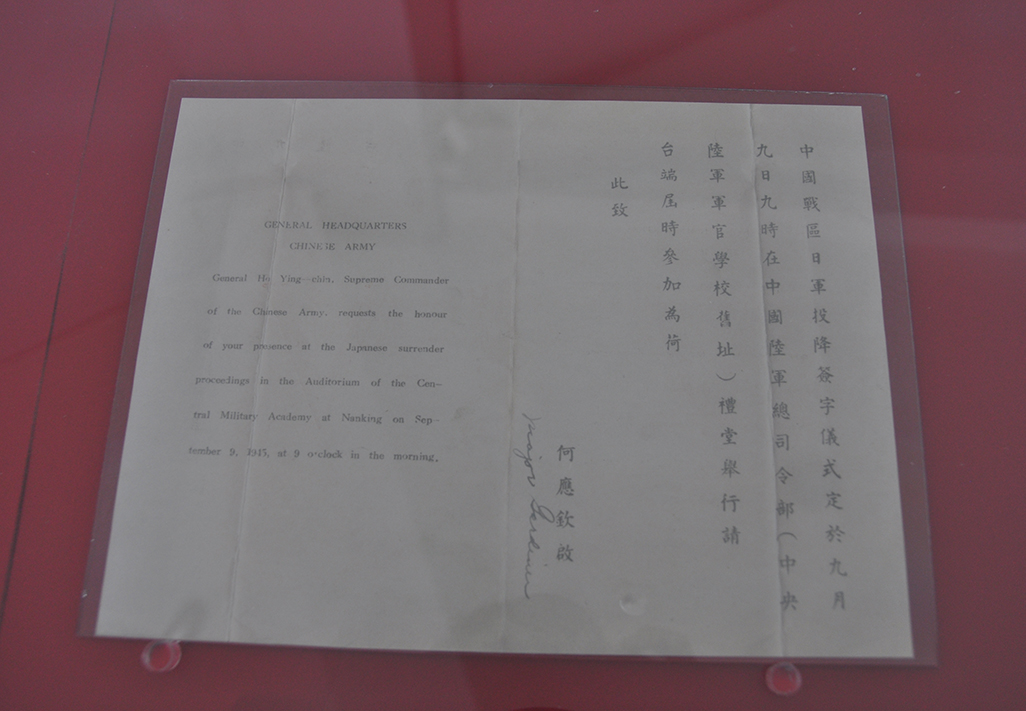 GENERAL HEADQUARTERS
CHINESE ARMY
General Ho Ying—chin, Supreme Commander
of the Chinese Army, requests the honour
of your presence at the Japanese surrender
proceedings in the Auditorium of the Cen—
tral Military Academy at Nanking on Sep—
tember 9, 1945, at 9 o'clock in the morning.
中國戰區日軍投降簽字儀式定於九月
九日九時在中國陸軍總司令部(中央
陸軍軍官學校舊址)禮堂舉行請
台端屆時參加為荷
此致
何應欽啟
Major Gardiner